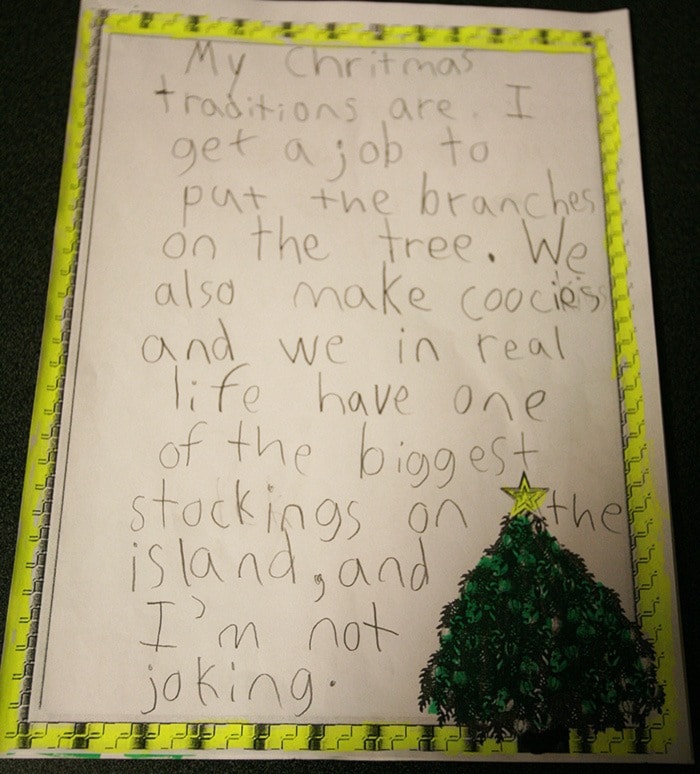 My Chritmas
traditions are. I
get a job to
put the branches
on the tree. We
also make coocies
and we in real
life have one
of the biggest
stockings on the
island, and
I'm not
joking.